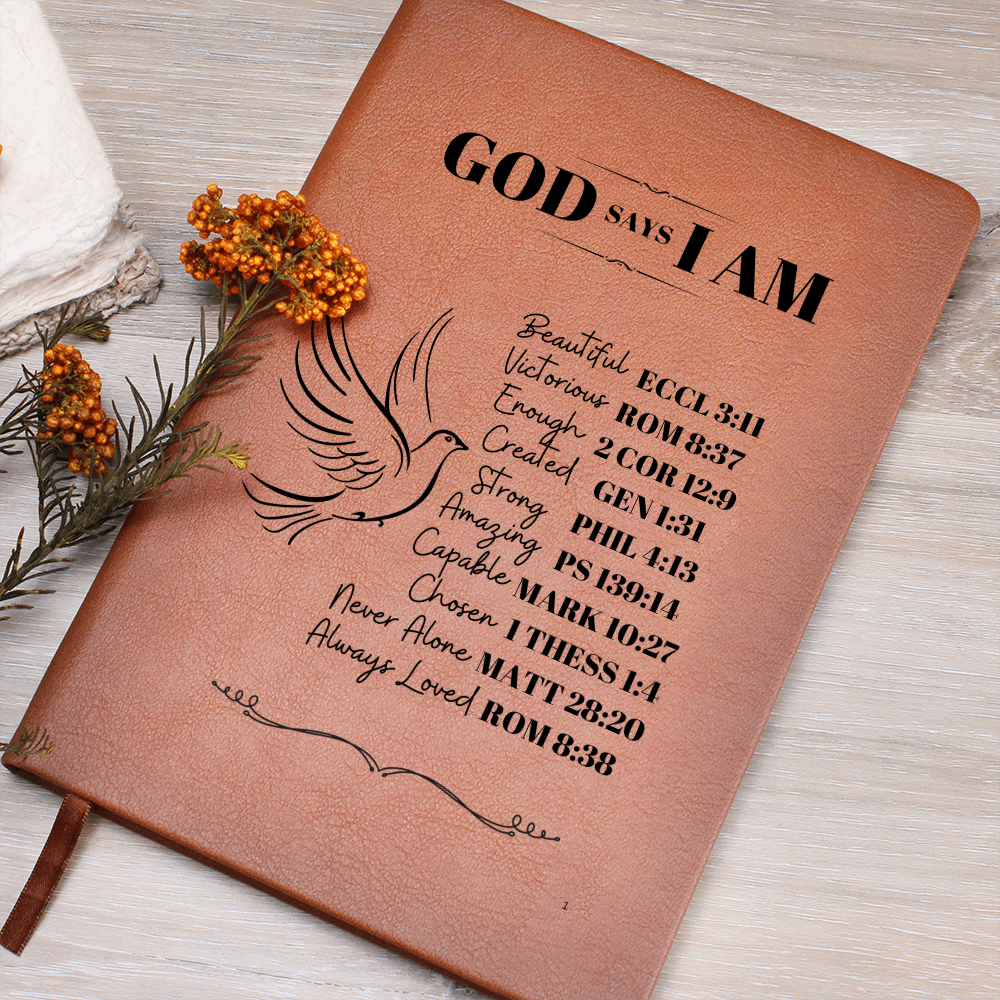 GOD SAYS I AM
Beautiful ECCL 3:11
Victorious ROM 8:37
Enough 2 COR 12:9
Created GEN 1:31
Strong PHIL 4:13
Amazing PS 139:14
Capable MARK 10:27
Chosen 1 THESS 1:4
Never Alone MATT 28:20
Always Loved ROM 8:38
1